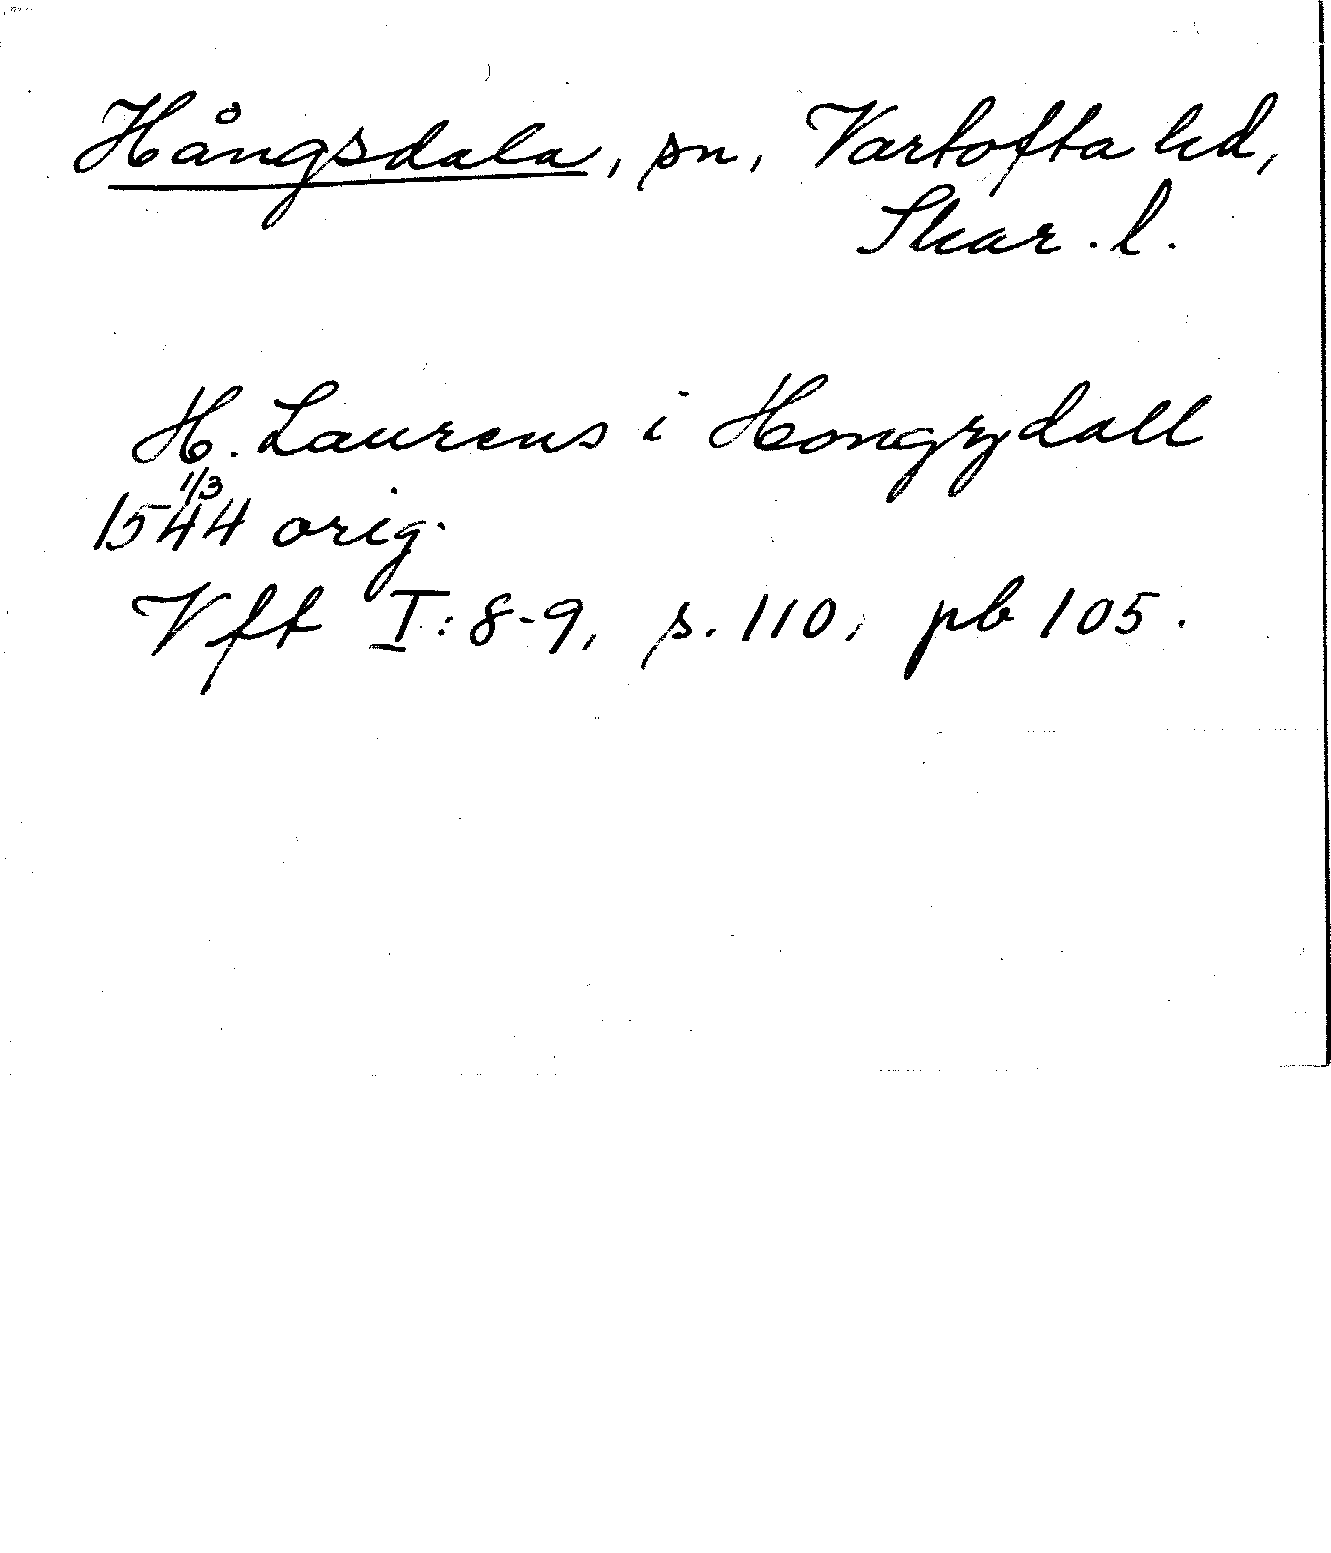 Hångsdala, sn, Vartofta hd,
Skar. l.
H. Laurens i Hongzdall
1/3
1544 orig.
Vft I:8-9, s. 110, pb 105.